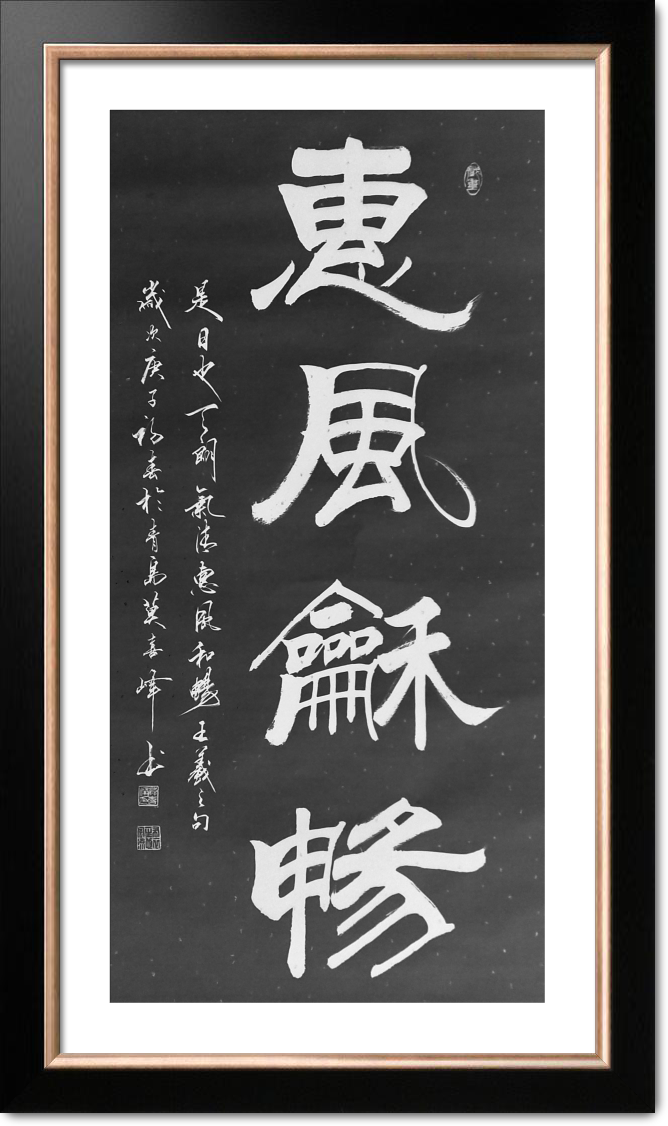 惠風龢暢
是日也天朗氣清惠風和暢王羲之句
歲次庚子初春於青島莫喜峰書